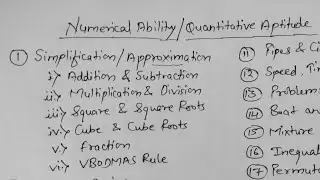 Numerical Ability/Quantitative Aptitude
① Simplification/Approximation
i) Addition & Subtraction
ii) Multiplication & Division
iii) Square & Square Roots
iv) Cube & Cube Roots
v) fraction
vi) VBODMAS Rule
⑪ Pipes & Ci
⑫ Speed, Ti
⑬ Problems
⑭ Boat an
⑮ Mixture
⑯ Inequal
⑰ Permuta